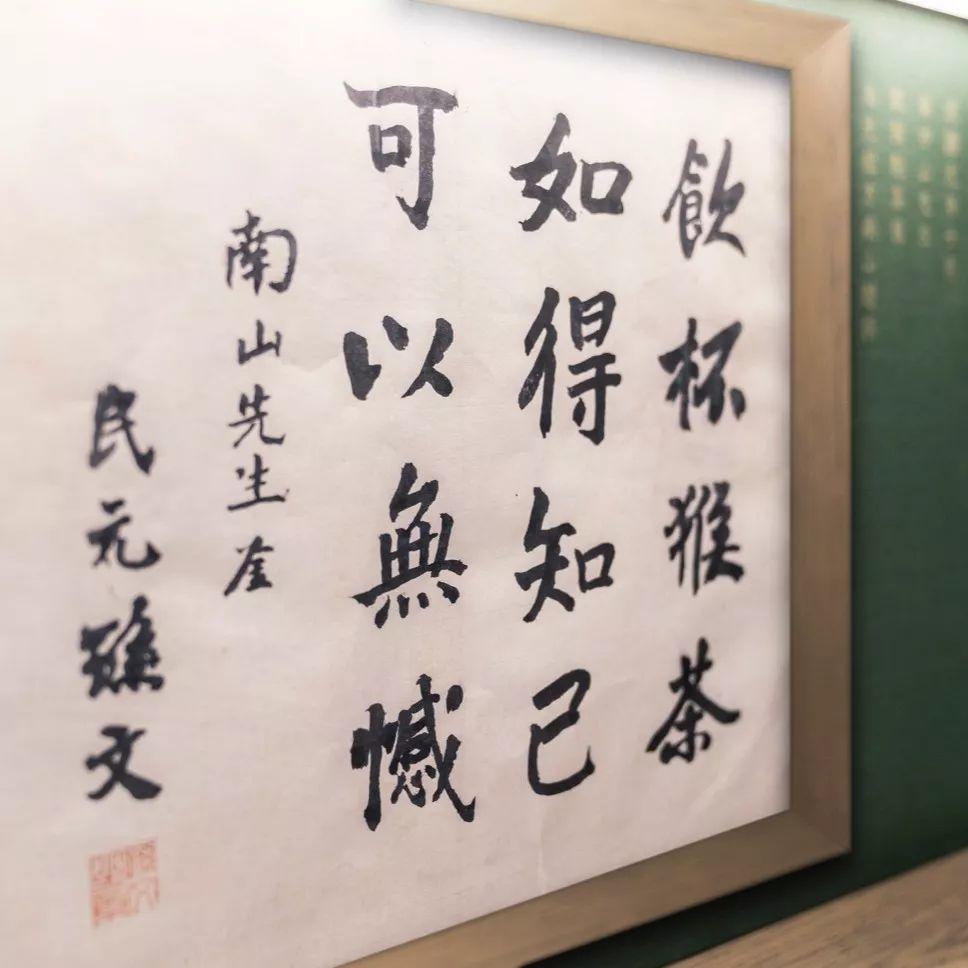 飲杯猴茶
如得知己
可以無憾
南山先生㕫
民元孫文